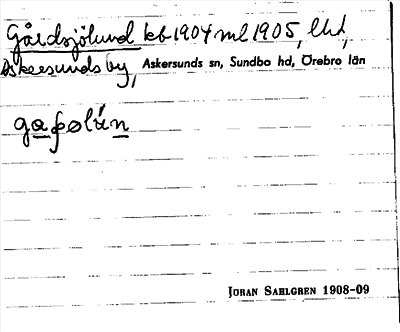 Gårdsjölund kb 1904 ml 1905, lht,
Askersunds by, Askersunds sn, Sundbo hd, Örebro län
JÖRAN SAHLGREN 1908-09